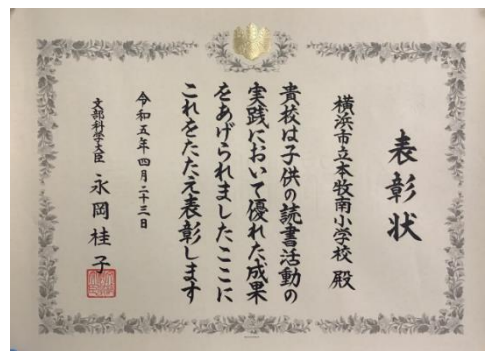 表彰状
横浜市立本牧南小学校 殿
貴校は子供の読書活動の
実践において優れた成果
をあげられましたここに
これをたたえ表彰します
令和五年四月二十三日
文部科学大臣 永岡桂子